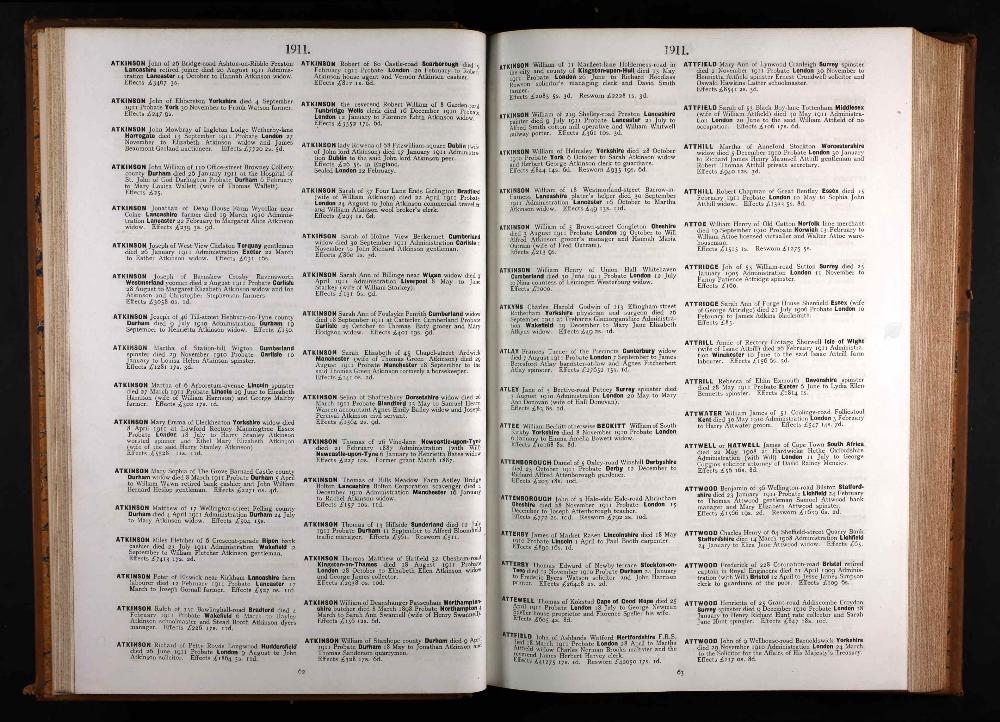 1911.
ATKINSON John of 26 Bridge-road Ashton-on-Ribble Preston
Lancashire retired joiner died 20 August 1911 Adminis-
tration Lancaster 14 October to Hannah Atkinson widow.
Effects £3467 3s.
ATKINSON John of Elkington Yorkshire died 4 September
1911 Probate York 30 November to Frank Watson farmer.
Effects £247 9s.
ATKINSON John Mowbray of Ingleton Lodge Wetherby-lane
Harrogate died 13 September 1911 Probate London 27
November to Elizabeth Atkinson widow and James
Beaumont Gorland auctioneer. Effects £7720 2s. 5d.
ATKINSON John William of 110 Office-street Browney Colliery
county Durham died 26 January 1911 at the Hospital of
St. John of God Darlington Probate Durham 6 February
to Mary Louisa Wallett (wife of Thomas Wallett).
Effects £25.
ATKINSON Jonathan of Dean House Farm Wycollar near
Colne Lancashire farmer died 19 March 1910 Adminis-
tration Lancaster 22 February to Margaret Alice Atkinson
widow. Effects £239 3s. 9d.
ATKINSON Joseph of West View Chelston Torquay gentleman
died 26 January 1911 Administration Exeter 22 March
to Esther Atkinson widow. Effects £631 16s.
ATKINSON Joseph of Barnskew Crosby Ravensworth
Westmorland yeoman died 2 August 1911 Probate Carlisle
28 August to Margaret Elizabeth Atkinson widow and Jos
Atkinson and Christopher Stephenson farmers.
Effects £3058 0s. 1d.
ATKINSON Joseph of 46 Hill-street Hebburn-on-Tyne county
Durham died 9 July 1910 Administration Durham 19
September to Henrietta Atkinson widow. Effects £150.
ATKINSON Martha of Station-hill Wigton Cumberland
spinster died 29 November 1910 Probate Carlisle 10
January to Louisa Helen Atkinson spinster.
Effects £1281 17s. 3d.
ATKINSON Martha of 6 Arboretum-avenue Lincoln spinster
died 22 March 1911 Probate Lincoln 29 June to Elizabeth
Harrison (wife of William Harrison) and George Maltby
farmer. Effects £302 17s. 1d.
ATKINSON Mary Emma of Cleckheaton Yorkshire widow died
8 April 1911 at Lawford Rectory Manningtree Essex
Probate London 18 July to Harry Stanley Atkinson
worsted spinner and Ethel Mary Elizabeth Atkinson
(wife of the said Harry Stanley Atkinson).
Effects £5526 11s. 11d.
ATKINSON Mary Sophia of The Grove Barnard Castle county
Durham widow died 8 March 1911 Probate Durham 5 April
to William Wawn retired bank cashier and John William
Bernard Heslop gentleman. Effects £2271 0s. 4d.
ATKINSON Matthew of 17 Wellington-street Felling county
Durham died 4 April 1911 Administration Durham 24 July
to Mary Atkinson widow. Effects £304 15s.
ATKINSON Miles Fletcher of 6 Crescent-parade Ripon bank
cashier died 25 July 1911 Administration Wakefield 2
September to William Fletcher Atkinson gentleman.
Effects £7413 17s. 2d.
ATKINSON Peter of Elswick near Kirkham Lancashire farm
labourer died 12 February 1911 Probate Lancaster 17
March to Joseph Gornall farmer. Effects £527 0s. 11d.
ATKINSON Ralph of 11c Bowlinghall-road Bradford died 5
February 1911 Probate Wakefield 6 March to Hayley
Atkinson schoolmaster and Stead Booth Atkinson dyers
manager. Effects £226 17s. 11d.
ATKINSON Richard of Petty Royds Longwood Huddersfield
died 26 June 1911 Probate London 9 August to John
Atkinson solicitor. Effects £1864 3s. 11d.
62
ATKINSON Robert of 80 Castle-road Scarborough died 5
February 1911 Probate London 20 February to Robert
Atkinson house agent and Vernon Atkinson cashier.
Effects £817 1s. 6d.
ATKINSON the reverend Robert William of 8 Garden-road
Tunbridge Wells clerk died 16 December 1910 Probate
London 12 January to Florence Edith Atkinson widow.
Effects £3359 17s. 6d.
ATKINSON lady Rowena of 68 Fitzwilliam-square Dublin (wife
of John lord Atkinson) died 17 January 1911 Administra-
tion Dublin to the said John lord Atkinson peer.
Effects £26 3s. in England.
Sealed London 12 February.
ATKINSON Sarah of 37 Four Lane Ends Girlington Bradford
(wife of William Atkinson) died 22 April 1911 Probate
London 24 August to John Atkinson commercial traveller
and William Atkinson wool broker's clerk.
Effects £293 1s. 6d.
ATKINSON Sarah of Holme View Beckermet Cumberland
widow died 30 September 1911 Administration Carlisle
November to John Richard Atkinson gentleman.
Effects £860 1s. 3d.
ATKINSON Sarah Ann of Billinge near Wigan widow died 9
April 1911 Administration Liverpool 8 May to Jane
Starkey (wife of William Starkey).
Effects £131 6s. 9d.
ATKINSON Sarah Ann of Foulsyke Penrith Cumberland widow
died 18 September 1911 at Catterlen Cumberland Probate
Carlisle 25 October to Thomas Early grocer and Mary
Hodgson widow. Effects £401 19s. 9d.
ATKINSON Sarah Elizabeth of 45 Chapel-street Ardwick
Manchester (wife of Thomas Green Atkinson) died 25
August 1911 Probate Manchester 18 September to the
said Thomas Green Atkinson formerly a horsekeeper.
Effects £141 0s. 2d.
ATKINSON Selina of Shaftesbury Dorsetshire widow died 26
March 1911 Probate Blandford 15 May to Samuel Henry
Warren accountant Agnes Emily Bailey widow and Joseph
Percival Atkinson civil servant.
Effects £2304 2s. 9d.
ATKINSON Thomas of 26 Vine-lane Newcastle-upon-Tyne
died 21 February 1887 Administration (with Will)
Newcastle-upon-Tyne 6 January to Henrietta Bates widow.
Effects £227 10s. Former grant March 1887.
ATKINSON Thomas of Hills Meadow Farm Astley Bridge
Bolton Lancashire Bolton Corporation scavenger died 2
December 1910 Administration Manchester 16 January
to Rachel Atkinson widow.
Effects £157 10s. 11d.
ATKINSON Thomas of 13 Hillside Sunderland died 12 July
1911 Probate Durham 11 September to Alfred Bloomfield
traffic manager. Effects £561. Resworn £511.
ATKINSON Thomas Matthew of Hatfield 52 Chesham-road
Kingston-on-Thames died 18 August 1911 Probate
London 28 October to Elizabeth Ellen Atkinson widow
and George James collector.
Effects £1938 0s. 10d.
ATKINSON William of Deanshanger Passenham Northampton-
shire butcher died 8 March 1868 Probate Northampton 1
March to Hannah Swannell (wife of Henry Swannell).
Effects £156 12s. 6d.
ATKINSON William of Stanhope county Durham died 9 April
1911 Probate Durham 18 May to Jonathan Atkinson and
Thomas Sanderson quarrymen.
Effects £328 17s. 6d.
1911.
ATKINSON William of 11 Marfleet-lane Holderness-road in
the city and county of Kingston-upon-Hull died 13 May
1911 Probate London 20 June to Richard Hoodless
Rowson solicitor's managing clerk and David Smith
farmer.
Effects £2085 5s. 3d. Resworn £2228 1s. 3d.
ATKINSON William of 219 Shelley-road Preston Lancashire
painter died 9 July 1911 Probate Lancaster 21 July to
Alfred Smith cotton mill operative and William Whitwell
railway porter. Effects £361 10s. 3d.
ATKINSON William of Helmsley Yorkshire died 28 October
1910 Probate York 6 October to Sarah Atkinson widow
and Herbert George Atkinson clerk to guardians.
Effects £844 14s. 6d. Resworn £935 19s. 6d.
ATKINSON William of 18 Westmorland-street Barrow-in-
Furness Lancashire plater's helper died 30 September
1911 Administration Lancaster 16 October to Martha
Atkinson widow. Effects £49 13s. 11d.
ATKINSON William of 5 Brown-street Congleton Cheshire
died 3 August 1911 Probate London 19 October to Will
Alfred Atkinson grocer's manager and Hannah Maria
Outram (wife of Fred Outram).
Effects £213 9s.
ATKINSON William Henry of Union Hall Whitehaven
Cumberland died 30 June 1911 Probate London 12 July
to Nina countess of Leiningen Westerburg widow.
Effects £1000.
ATKYNS Charles Harold Godwin of 113 Effingham-street
Rotherham Yorkshire physician and surgeon died 26
September 1911 at Trehurris Administra-
tion Wakefield 19 December to Mary Jane Elizabeth
Atkyns widow. Effects £49 2s. 1d.
ATLAY Frances Turner of the Precincts Canterbury widow
died 7 August 1911 Probate London 7 September to James
Beresford Atlay barrister-at-law and Agnes Fitzherbert
Atlay spinster. Effects £27652 15s. 1d.
ATLEY Jane of 1 Bective-road Putney Surrey spinster died
3 August 1910 Administration London 20 May to Mary
Ann Donovan (wife of Hall Donovan).
Effects £83 8s. 1d.
ATTEE William Beckitt otherwise BECKITT William of South
Kirkby Yorkshire died 8 November 1910 Probate London
6 January to Emma Amelia Bowett widow.
Effects £10168 8s. 8d.
ATTENBOROUGH Daniel of 5 Oxley-road Winshill Derbyshire
died 25 October 1911 Probate Derby 12 December to
Richard Alfred Attenborough gardener.
Effects £205 18s. 10d.
ATTENBOROUGH John of 2 Hale-side Hale-road Altrincham
Cheshire died 28 November 1911 Probate London 15
December to Joseph Attenborough teacher.
Effects £772 2s. 11d. Resworn £792 2s. 10d.
ATTERBY James of Market Rasen Lincolnshire died 18 May
1910 Probate Lincoln 1 April to Paul Booth carpenter.
Effects £890 16s. 1d.
ATTERBY Thomas Edward of Newby terrace Stockton-on-
Tees died 12 November 1910 Probate Durham 21 January
to Frederic Byers Watson solicitor and John Harrison
printer. Effects £26448 2s. 2d.
ATTEWELL Thomas of Kokstad Cape of Good Hope died 25
April 1911 Probate London 28 July to George Newman
Speller house proprietor and Florence Speller his wife.
Effects £605 4s. 8d.
ATTFIELD John of Ashlands Watford Hertfordshire F.R.S.
died 18 March 1911 Probate London 28 April to Martha
Attfield widow Charles Norman Brooks maltster and the
reverend James Herbert Harvey clerk.
Effects £41275 17s. 1d. Resworn £40050 17s. 1d.
63
ATTFIELD Mary Ann of Lynwood Cranleigh Surrey spinster
died 2 November 1911 Probate London 30 November to
Henrietta Attfield spinster Ernest Crundwell solicitor and
Oswald Hawkins Latter schoolmaster.
Effects £8541 2s. 3d.
ATTFIELD Sarah of 53 Black Boy-lane Tottenham Middlesex
(wife of William Attfield) died 30 May 1911 Administra-
tion London 20 June to the said William Attfield of no
occupation. Effects £106 17s. 6d.
ATTHILL Martha of Annefield Stockton Worcestershire
widow died 5 December 1910 Probate London 30 January
to Richard James Henry Maunsell Atthill gentleman and
Robert Thomas Atthill private secretary.
Effects £940 12s. 3d.
ATTHILL Robert Chapman of Great Bentley Essex died 15
February 1911 Probate London 10 May to Sophia John
Atthill widow. Effects £1322 5s. 8d.
ATTOE William Henry of Old Catton Norfolk lime merchant
died 19 September 1910 Probate Norwich 13 February to
William Attoe licensed victualler and Walter Attoe ware-
houseman.
Effects £1515 1s. Resworn £1275 5s.
ATTRIDGE Job of 53 William-road Sutton Surrey died 25
January 1905 Administration London 11 November to
Fanny Patience Attridge spinster.
Effects £160.
ATTRIDGE Sarah Ann of Forge House Shenfield Essex (wife
of George Attridge) died 21 July 1906 Probate London 10
February to James Atkins blacksmith.
Effects £83.
ATTRILL Annie of Rectory Cottage Shorwell Isle of Wight
(wife of Isaac Attrill) died 26 February 1911 Administra-
tion Winchester 10 June to the said Isaac Attrill farm
labourer. Effects £156 6s. 3d.
ATTRILL Rebecca of Eldin Exmouth Devonshire spinster
died 28 May 1911 Probate Exeter 6 June to Lydia Ellen
Bennetts spinster. Effects £1814 1s.
ATTWATER William James of 51 Coolinge-road Folkestone
Kent died 30 May 1910 Administration London 3 February
to Harry Attwater groom. Effects £547 14s. 7d.
ATTWELL or HATWELL James of Cape Town South Africa
died 22 May 1908 at Hardwicke Hethe Oxfordshire
Administration (with Will) London 11 July to George
Coggins solicitor attorney of David Rainey Menzies.
Effects £56 16s. 8d.
ATTWOOD Benjamin of 36 Wellington-road Bilston Stafford-
shire died 25 January 1911 Probate Lichfield 24 February
to Thomas Attwood gentleman Samuel Attwood bank
manager and Mary Elizabeth Attwood spinster.
Effects £1566 19s. 2d. Resworn £1659 6s. 2d.
ATTWOOD Charles Henry of 64 Sheffield-street Quarry Bank
Staffordshire died 14 March 1908 Administration Lichfield
24 January to Eliza Jane Attwood widow. Effects £65.
ATTWOOD Frederick of 228 Coronation-road Bristol retired
captain in Royal Engineers died 21 April 1909 Adminis-
tration (with Will) Bristol 12 April to Jesse James Simpson
clerk to guardians of the poor. Effects £109 6s.
ATTWOOD Henrietta of 25 Grant-road Addiscombe Croydon
Surrey spinster died 9 December 1910 Probate London 18
January to Henry Richard Hunt rate collector and Sarah
Jane Hunt spinster. Effects £647 18s. 10d.
ATTWOOD John of 9 Wellhouse-road Barnoldswick Yorkshire
died 29 November 1910 Administration London 24 March
to the Solicitor for the Affairs of His Majesty's Treasury.
Effects £217 0s. 8d.